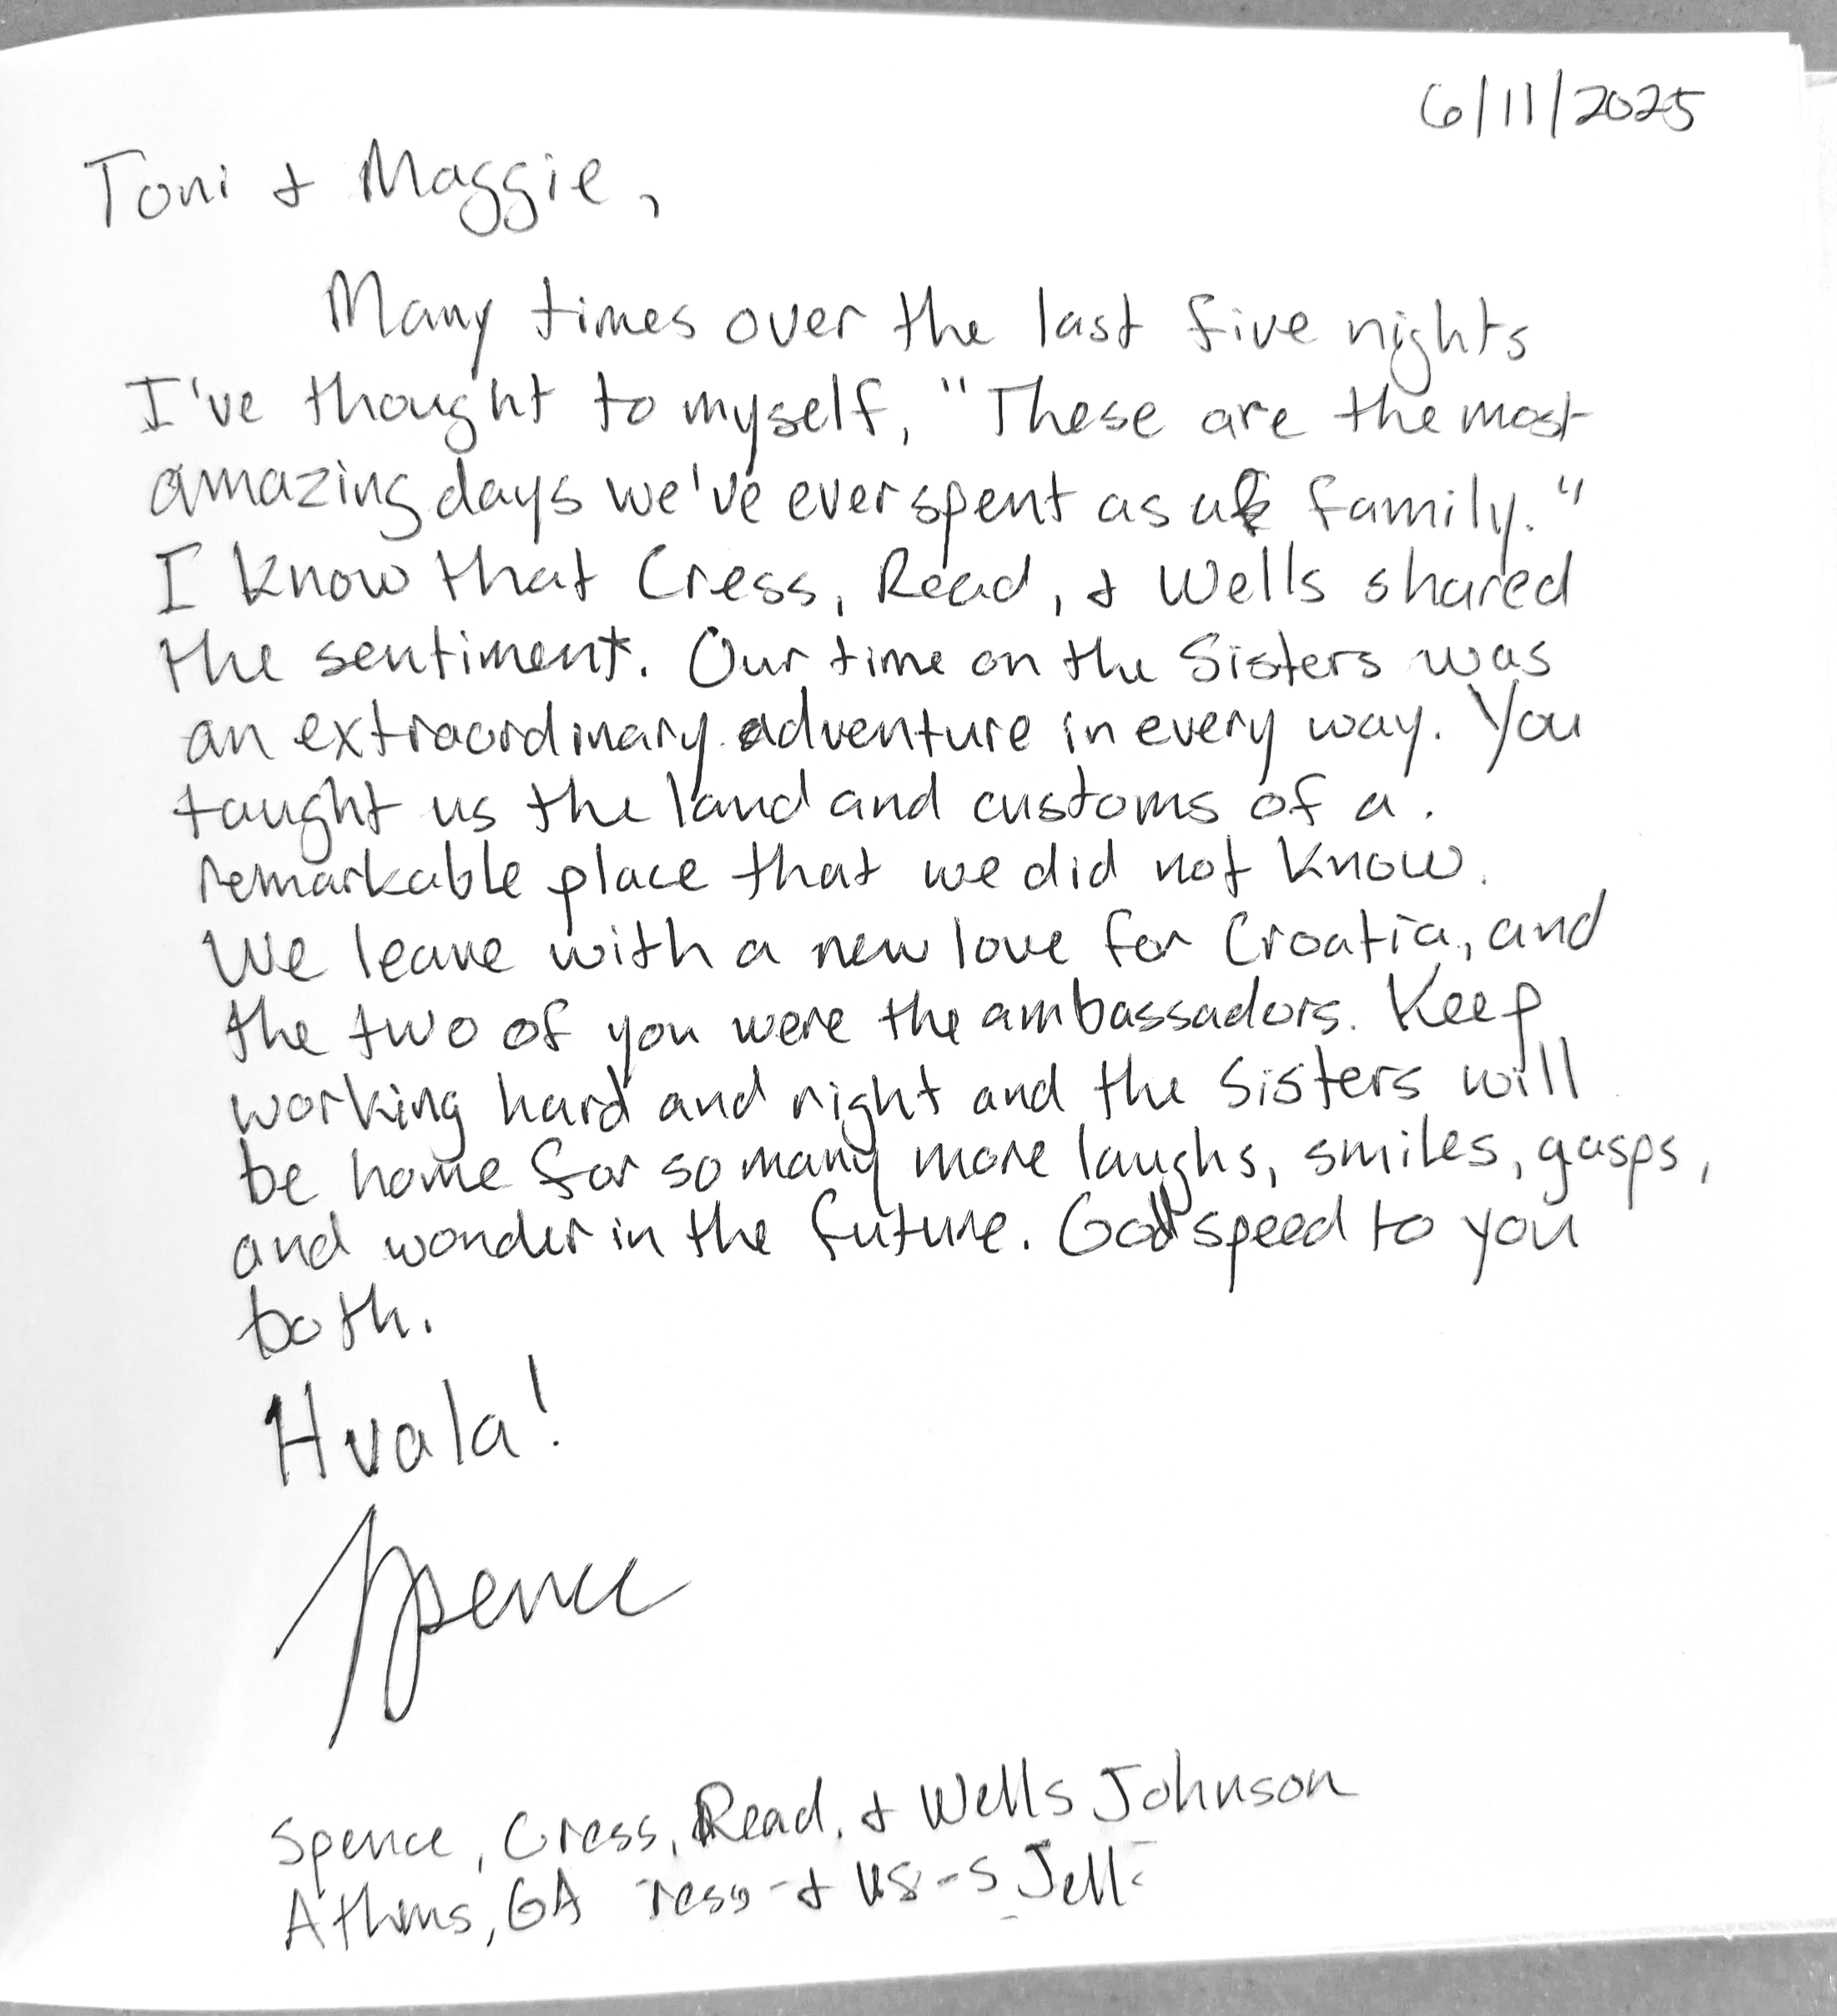 6/11/2025
Toni & Maggie,
Many times over the last five nights
I've thought to myself, "These are the most
amazing days we've ever spent as a family."
I know that Cress, Read, & Wells shared
the sentiment. Our time on the Sisters was
an extraordinary adventure in every way. You
taught us the land and customs of a
remarkable place that we did not know.
We leave with a new love for Croatia, and
the two of you were the ambassadors. Keep
working hard and right and the Sisters will
be home for so many more laughs, smiles, gasps,
and wonder in the future. Godspeed to you
both.
Hvala!
Spence
Spence, Cress, Read, & Wells Johnson
Athens, GA